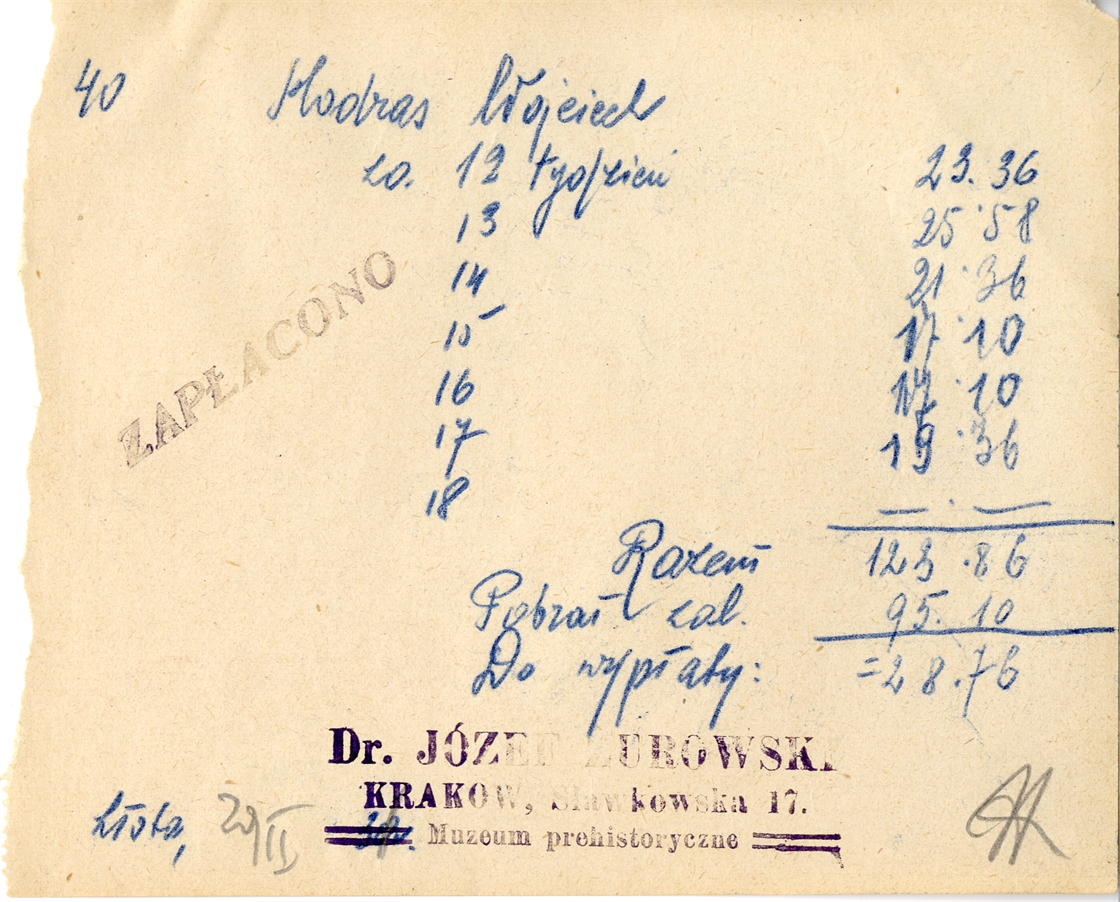 40 Hodras Wojciech
za. 12 tydzień 23.36
13 25.58
14 21.36
15 17.10
16 17.10
17 19.36
18 — . —
ZAPŁACONO
Razem 123.86
Pobrał zal. 95.10
Do wypłaty: =28.76
Dr. JÓZEF ŻUROWSKI
KRAKÓW, Sławkowska 17.
Muzeum prehistoryczne
Złota, 29/II